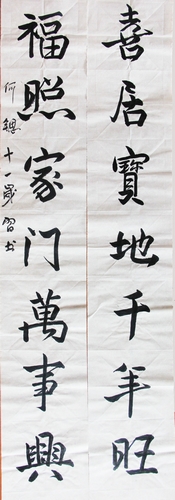 喜居寶地千年旺
福照家门萬事興
何鎴十一歲習书